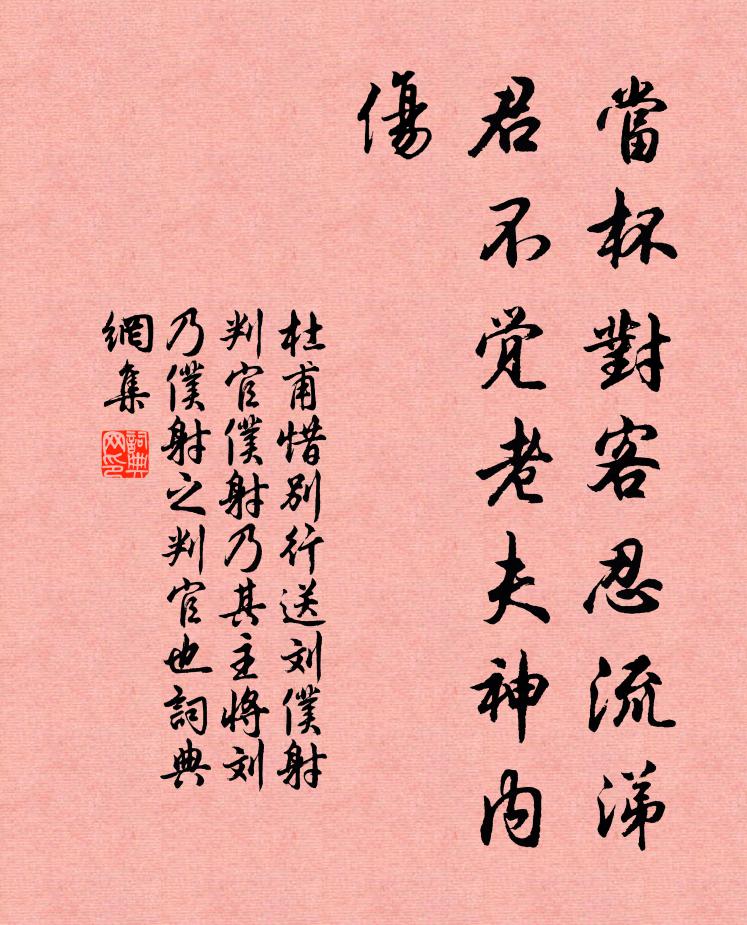 當杯對客忍流涕
君不覚老夫神内
傷
杜甫惜別行送刘僕射
判官僕射乃其主將刘
乃僕射之判官也詞典
網集
詞典网印